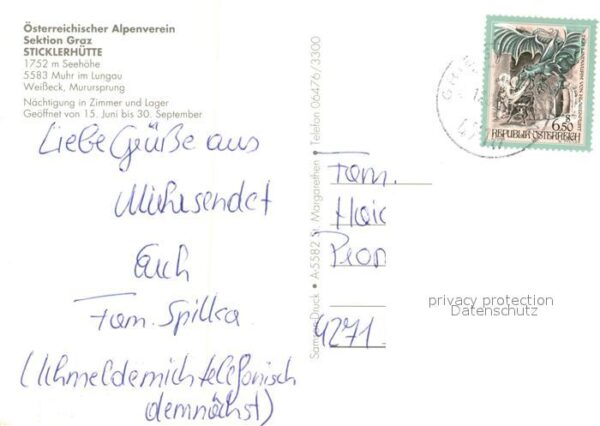 Österreichischer Alpenverein
Sektion Graz
STICKLERHÜTTE
1752 m Seehöhe
5583 Muhr im Lungau
Weißeck, Murursprung
Nächtigung in Zimmer und Lager
Geöffnet von 15. Juni bis 30. September
Liebe Grüße aus
Muhr sendet
Euch
Fam. Spilka
(Ich melde mich telefonisch
demnächst)
SamsonDruck • A-5582 St. Margarethen • Telefon 06476/3300
6.50
REPUBLIK ÖSTERREICH
Fam.
Haic
4271
privacy protection
Datenschutz